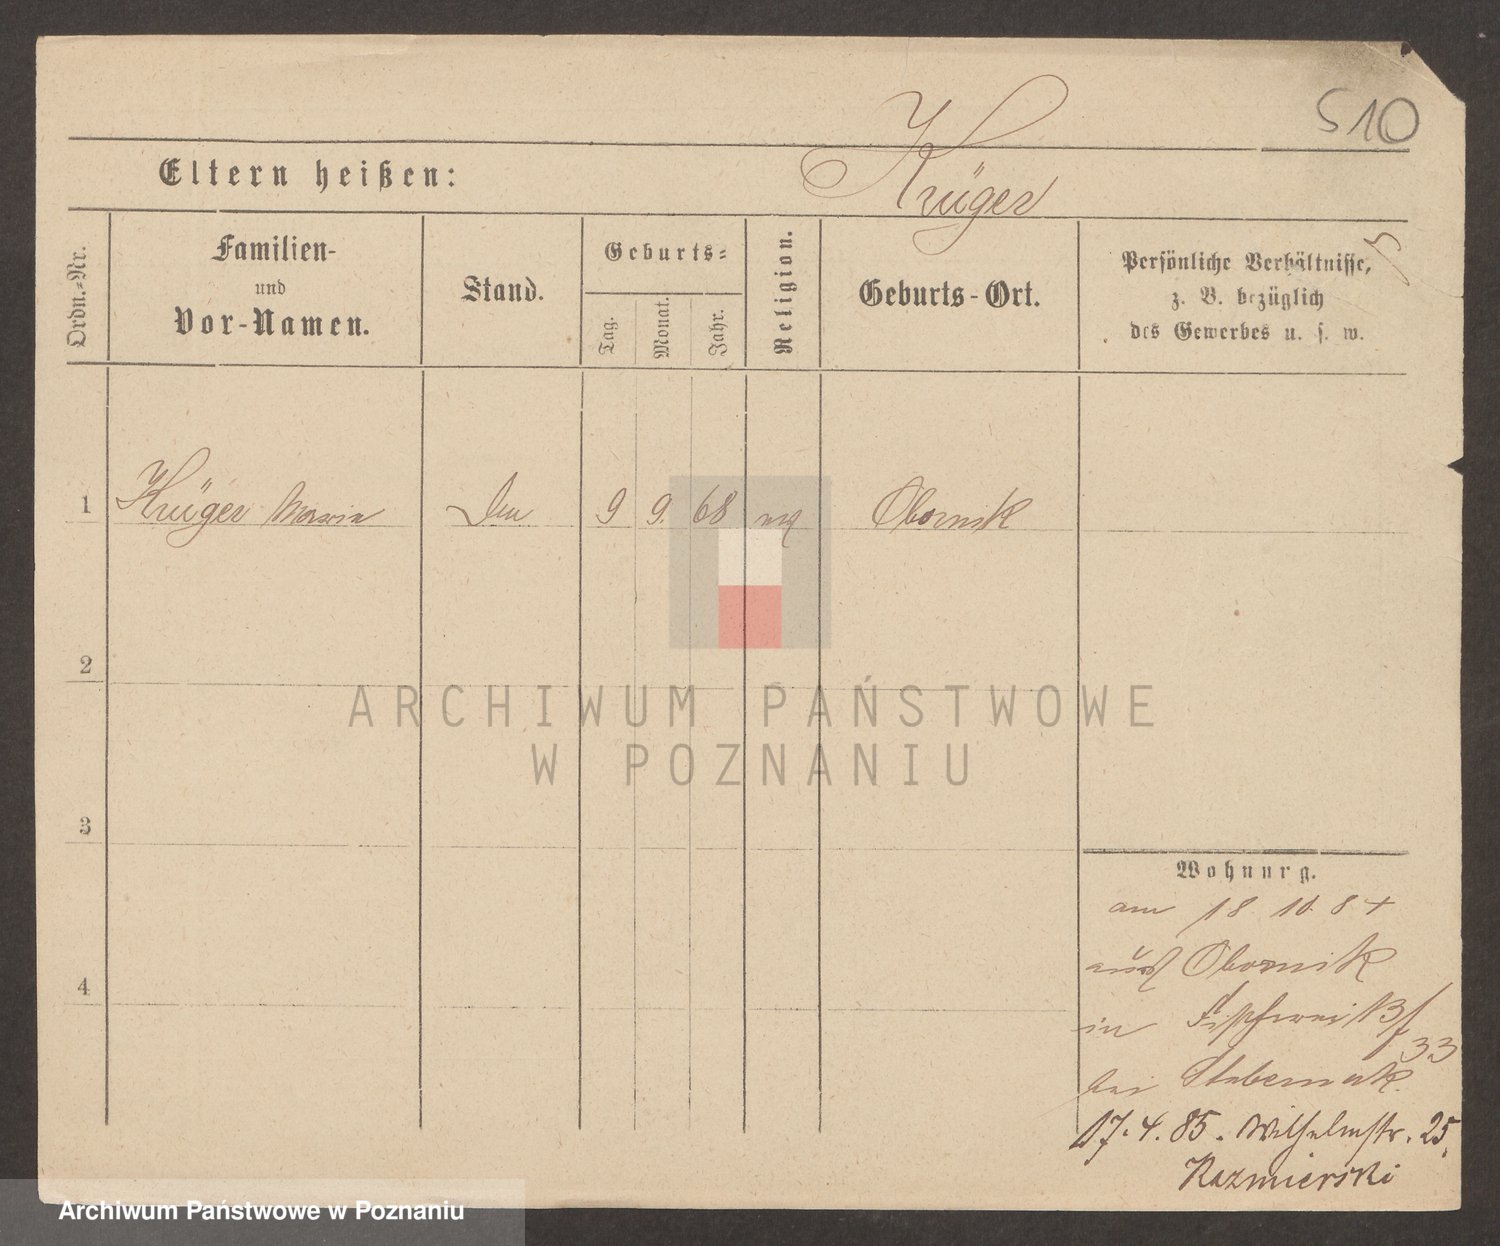 510
Krüger
Eltern heißen:
Ordn.-Nr.
Familien-
und
Vor-Namen.
Stand.
Geburts-
Tag.
Monat.
Jahr.
Religion.
Geburts-Ort.
Persönliche Verhältnisse,
z. B. bezüglich
des Gewerbes u. s. w.
1 Krüger Maria 9 9. 68 Obornik
2
ARCHIWUM PAŃSTWOWE
W POZNANIU
3
Wohnurg.
am 18 10 84
aus Obornik
4
in 33
bei
17. 4. 85. Wilhelmstr. 25.
Kazmierski
Archiwum Państwowe w Poznaniu